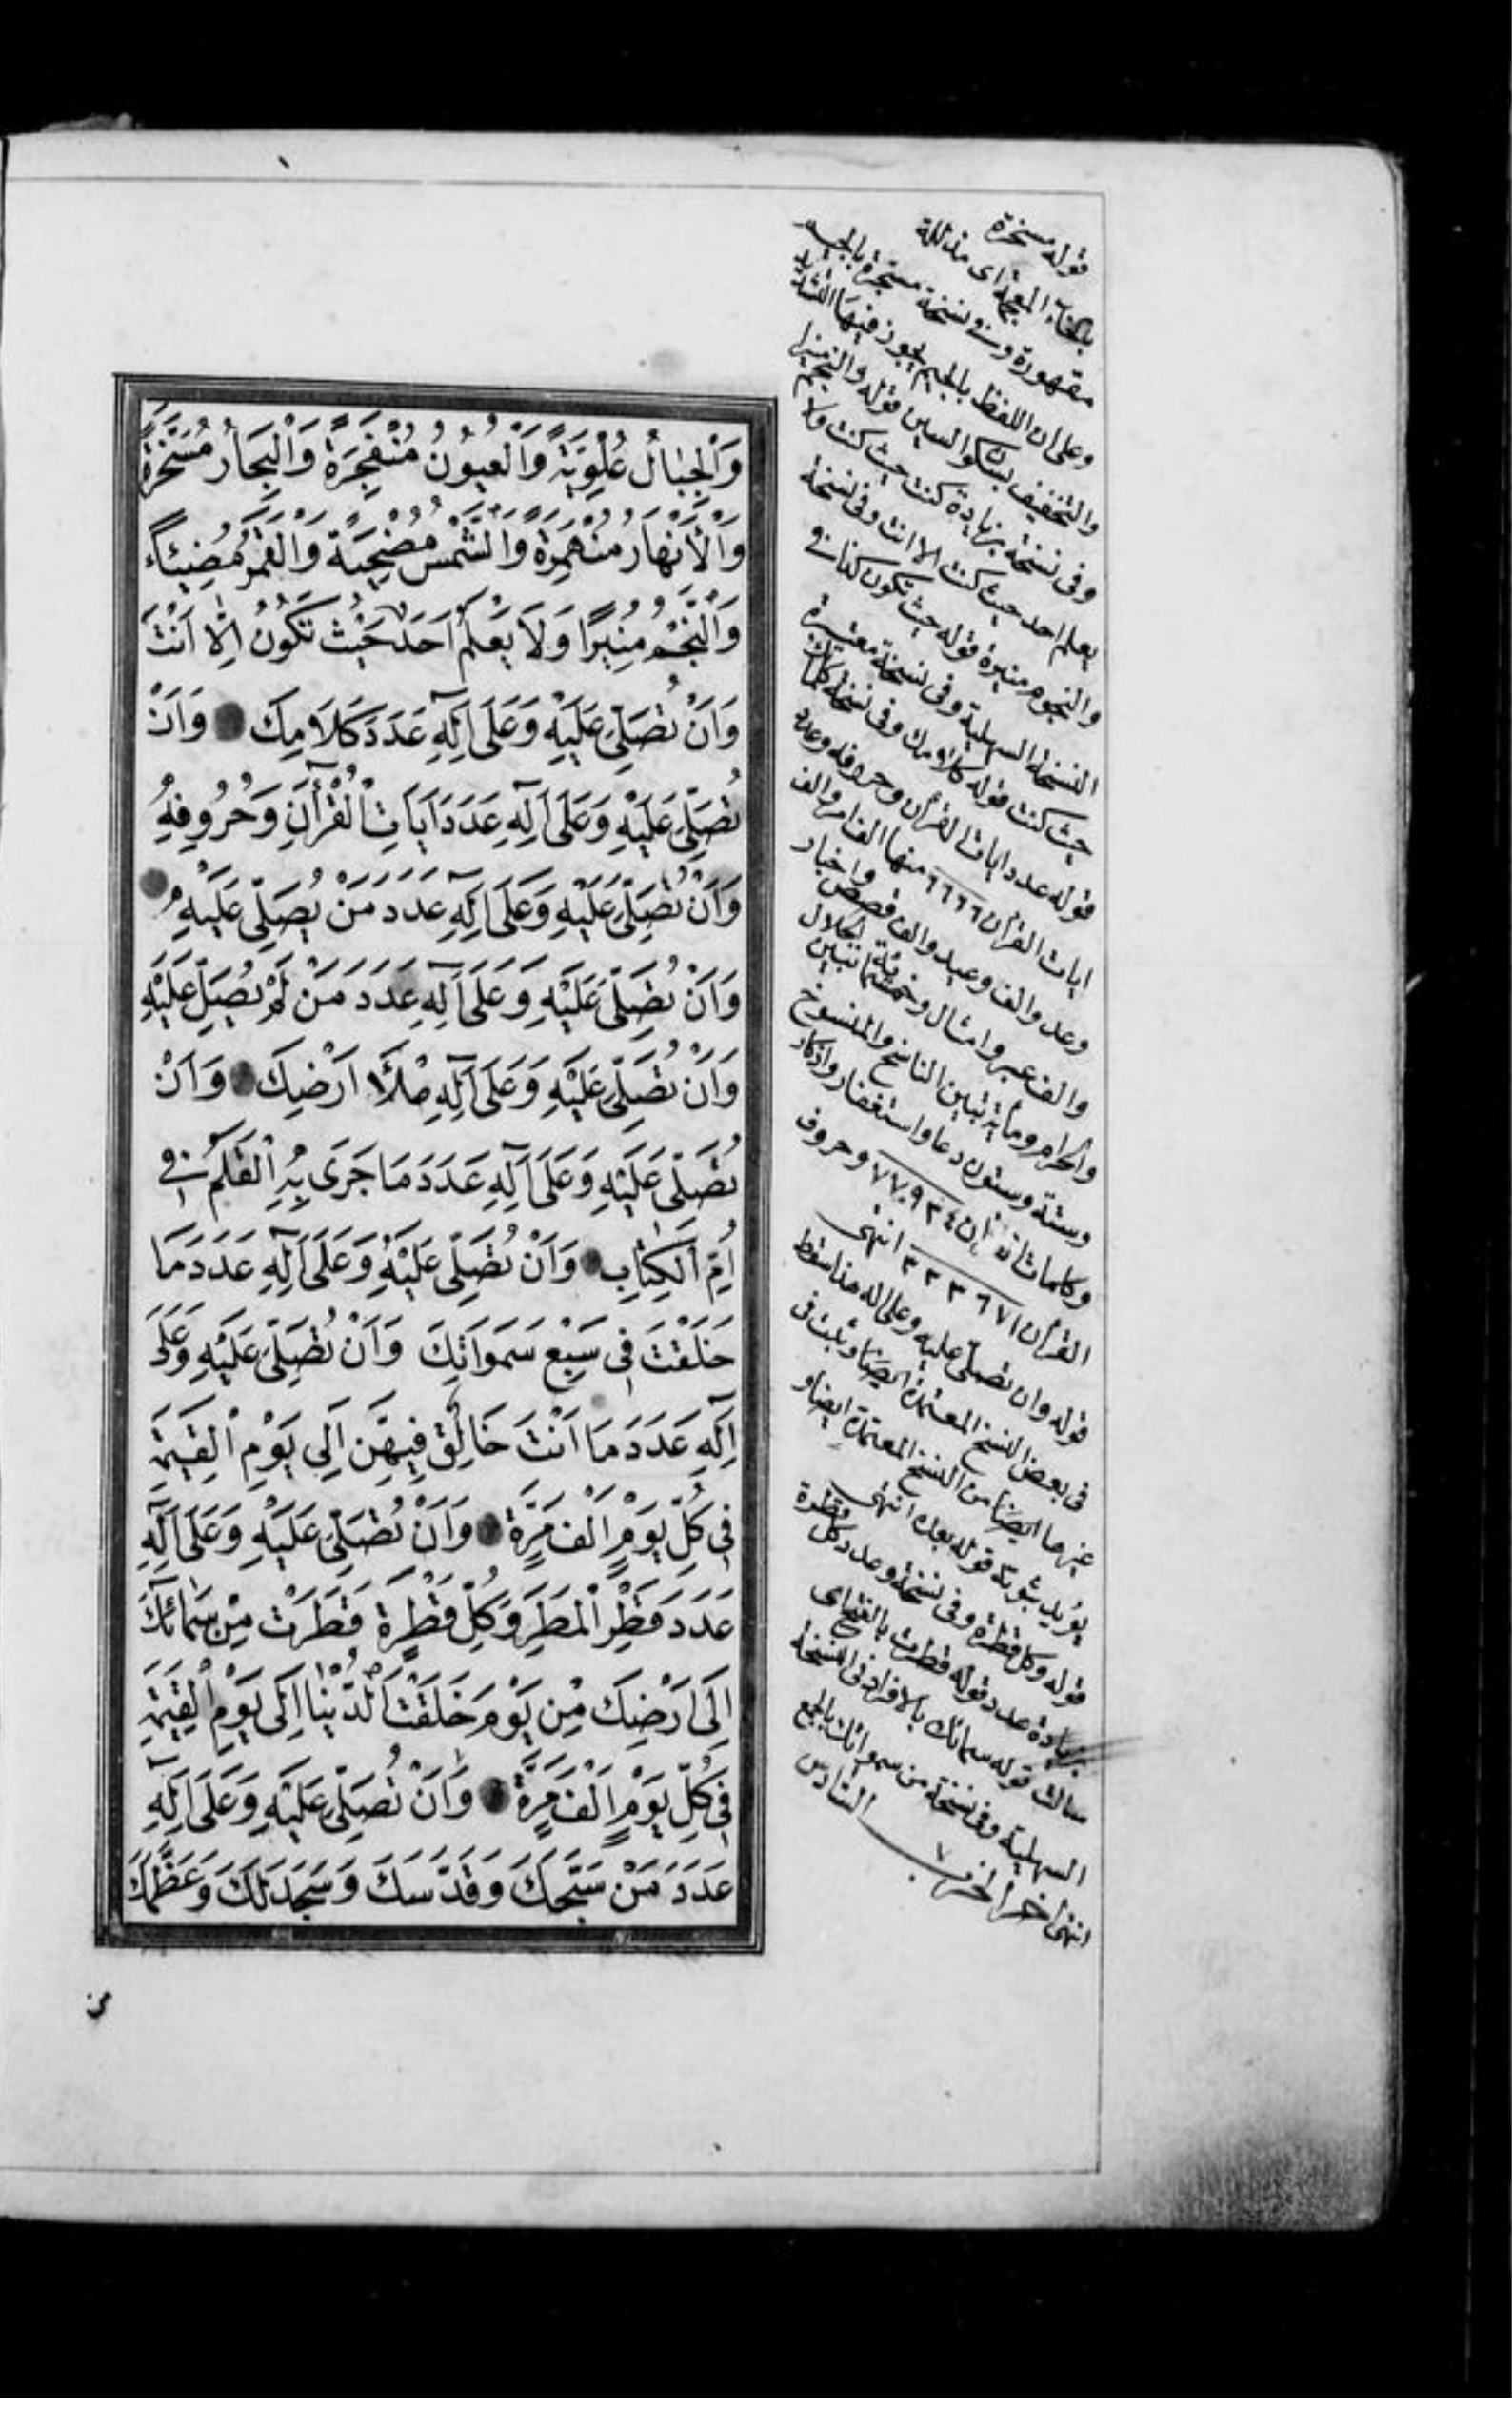 وَالْجِبَالُ عُلْوِيَّةً وَالْعُيُونُ مُنْفَجِرَةً وَالْبِحَارُ مُسَخَّرَةً
وَالْأَنْهَارُ مُنْهَمِرَةً وَالشَّمْسُ مُضْحِيَةً وَالْقَمَرُ مُضِيئًا
وَالنَّجْمُ مُنِيرًا وَلَا يَعْلَمُ أَحَدٌ حَيْثُ تَكُونُ إِلَّا أَنْتَ
وَأَنْ تُصَلِّيَ عَلَيْهِ وَعَلَى آلِهِ عَدَدَ كَلَامِكَ وَأَنْ
تُصَلِّيَ عَلَيْهِ وَعَلَى آلِهِ عَدَدَ آيَاتِ الْقُرْآنِ وَحُرُوفِهِ
وَأَنْ تُصَلِّيَ عَلَيْهِ وَعَلَى آلِهِ عَدَدَ مَنْ يُصَلِّي عَلَيْهِ
وَأَنْ تُصَلِّيَ عَلَيْهِ وَعَلَى آلِهِ عَدَدَ مَنْ لَمْ يُصَلِّ عَلَيْهِ
وَأَنْ تُصَلِّيَ عَلَيْهِ وَعَلَى آلِهِ مِلْأَ أَرْضِكَ وَأَنْ
تُصَلِّيَ عَلَيْهِ وَعَلَى آلِهِ عَدَدَ مَا جَرَى بِهِ الْقَلَمُ فِي
أُمِّ الْكِتَابِ وَأَنْ تُصَلِّيَ عَلَيْهِ وَعَلَى آلِهِ عَدَدَ مَا
خَلَقْتَ فِي سَبْعِ سَمَوَاتِكَ وَأَنْ تُصَلِّيَ عَلَيْهِ وَعَلَى
آلِهِ عَدَدَ مَا أَنْتَ خَالِقٌ فِيهِنَّ إِلَى يَوْمِ الْقِيَمَةِ
فِي كُلِّ يَوْمٍ أَلْفَ مَرَّةٍ وَأَنْ تُصَلِّيَ عَلَيْهِ وَعَلَى آلِهِ
عَدَدَ قَطْرِ الْمَطَرِ وَكُلِّ قَطْرَةٍ قَطَرَتْ مِنْ سَمَائِكَ
إِلَى أَرْضِكَ مِنْ يَوْمِ خَلَقْتَ الدُّنْيَا إِلَى يَوْمِ الْقِيَمَةِ
فِي كُلِّ يَوْمٍ أَلْفَ مَرَّةٍ وَأَنْ تُصَلِّيَ عَلَيْهِ وَعَلَى آلِهِ
عَدَدَ مَنْ سَبَّحَكَ وَقَدَّسَكَ وَسَجَدَ لَكَ وَعَظَّمَكَ
من
قوله مسخرة
بالخاء المعجمة اى مذللة
مقهورة وفى نسخة مسجرة بالجيم
وعلى ان اللفظ بالجيم يجوز فيها التشديد
والتخفيف بسكو السين قوله والنجم منيرا
وفى نسخة بزيادة كنت حيث كنت ولا
يعلم احد حيث كنت الا انت وفى نسخة
والنجوم منيرة قوله حيث تكون كذا فى
النسخة السهلية وفى نسخة معتبرة
حيث كنت قوله كلامك وفى نسخة كلماتك
قوله عدد ايات القرأن وحروفه وعدد
ايات القرأن ٦٦٦٦ منها الف امر والف
وعد والف وعيد والف قصص واخبار
والف عبر وامثال وخمسمائة تبيين الحلال
والحرام ومأية تبيين الناسخ والمنسوخ
وستة وستون دعا واستغفار واذكار
وكلمات القرأن ٧٧٩٣٤ وحروف
القرأن ٣٢٣٦٧١ انتهى
قوله وان تصلى عليه وعلى اله هذا سقط
فى بعض النسخ المعتمدة ايضا وثبت فى
غيرها ايضا من النسخ المعتمدة ايضا و
يؤيد ثبوته قوله بعد انتهى
قوله وكل قطرة وفى نسخة وعدد كل قطرة
بزيادة عدد قوله قطرت بالفتح اى
سالت قوله سمائك بالافراد فى النسخة
السهلية وفى نسخة من سمواتك بالجمع
انتهى اخر الحزب السادس